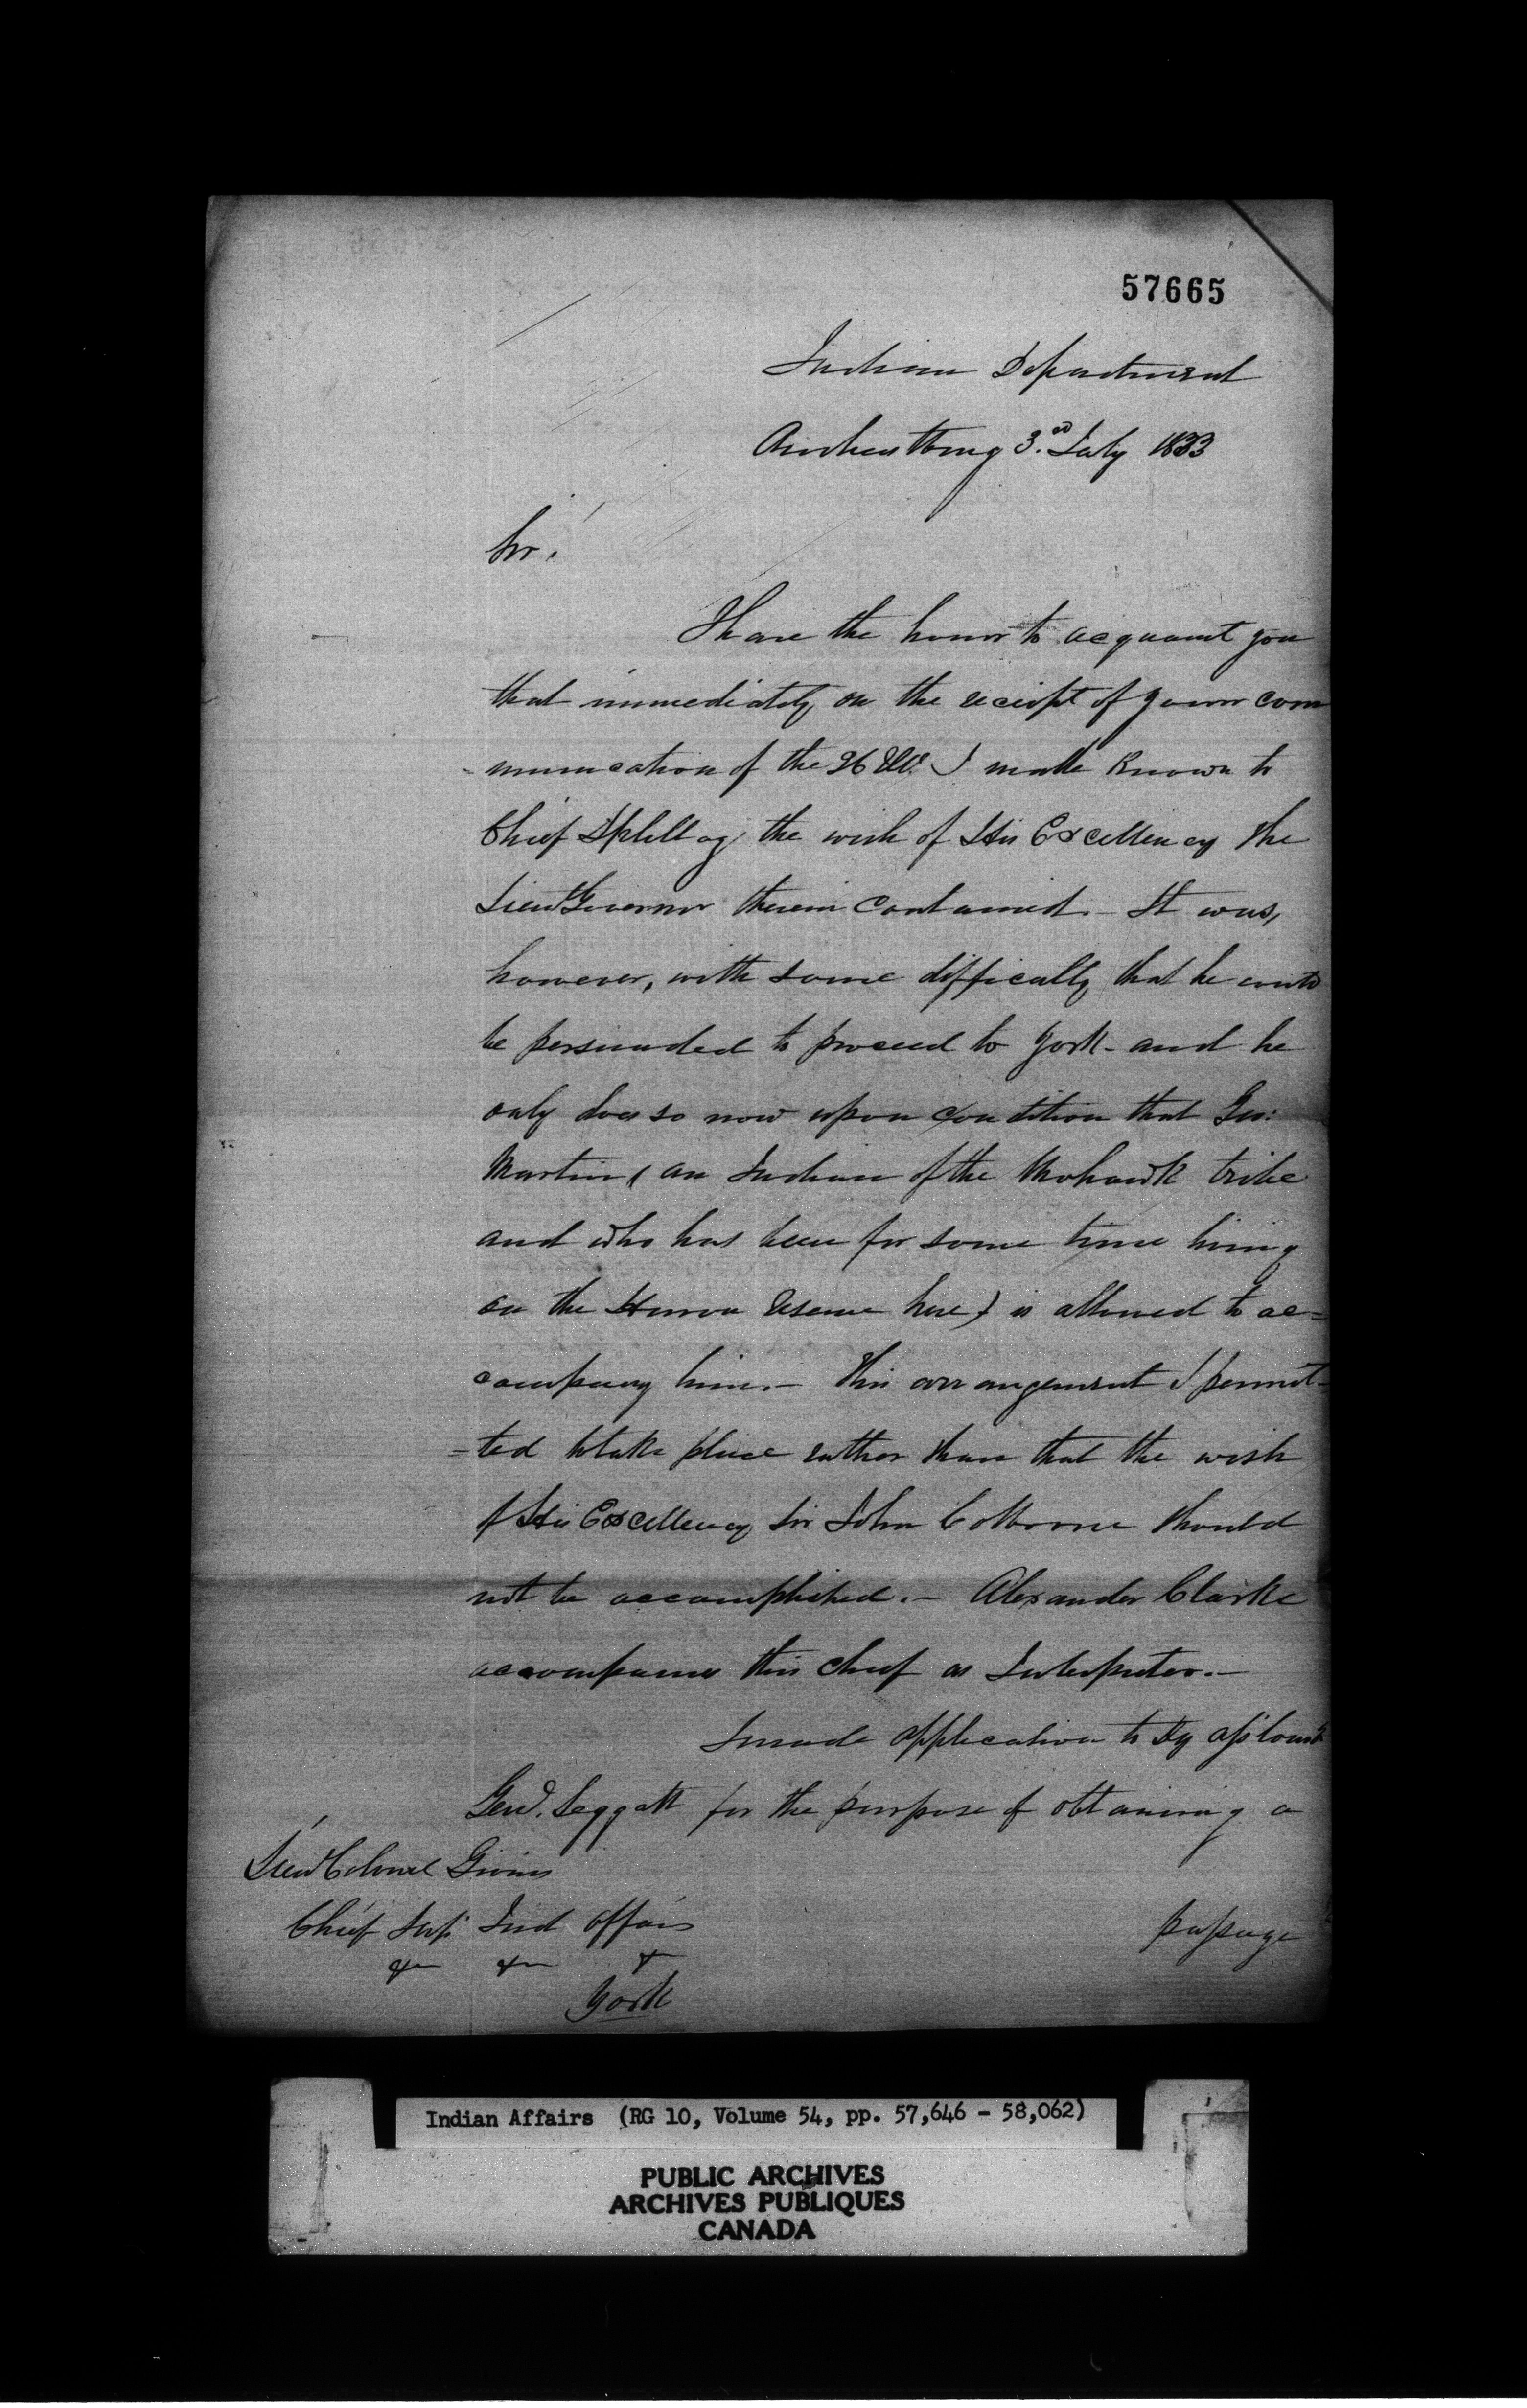 57665
Indian Department
Amherstburg 3.rd July 1833
Sir!
I have the honor to acquaint you
that immediately on the receipt of your com
-munication of the 26 Ult. I made known to
Chief Splitlog the wish of His Excellency the
Lieut Governor therein contained. - It was,
however, with some difficulty that he could
be persuaded to proceed to York - and he
only does so now upon condition that Geo:
Martin (an Indian of the Mohawk tribe
and who has been for some time living
on the Huron Reserve here) is allowed to ac=
company him. - This arrangement I permit-
=ted to take place rather than that the wish
of His Excellency Sir John Colborne should
not be accomplished. - Alexander Clarke
accompanies this chief as Interpreter. -
I made application to Dy Asst Comy
Genl. Leggatt for the purpose of obtaining a
passage
Lieut Colonel Givins
Chief Supt Ind Affairs
&c &c &
York
Indian Affairs (RG 10, Volume 54, pp. 57,646 - 58,062)
PUBLIC ARCHIVES
ARCHIVES PUBLIQUES
CANADA